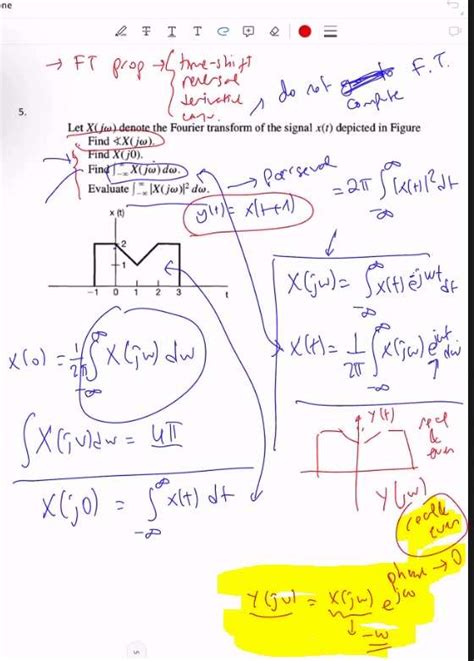 ne
→ FT prop → time-shift
reversal
derivative
conv.
do not compute F.T.
5.
Let X(jω) denote the Fourier transform of the signal x(t) depicted in Figure
Find ∢X(jω).
Find X(j0).
Find ∫_{-∞}^{∞} X(jω) dω.
Evaluate ∫_{-∞}^{∞} |X(jω)|² dω.
→ Parseval
= 2π ∫_{-∞}^{∞} |x(t)|² dt
y(t) = x(t+1)
x (t)
2
1
−1 0 1 2 3 t
X(jω) = ∫_{-∞}^{∞} x(t) e^{-jωt} dt
x(t) = 1/2π ∫_{-∞}^{∞} X(jω) e^{jωt} dω
x(0) = 1/2π ∫_{-∞}^{∞} X(jω) dω
∫ X(jω) dω = 4π
X(j0) = ∫_{-∞}^{∞} x(t) dt
Y(t)
real & even
Y(jω)
real & even
phase → 0
Y(jω) = X(jω) e^{jω}
↓ -ω
5